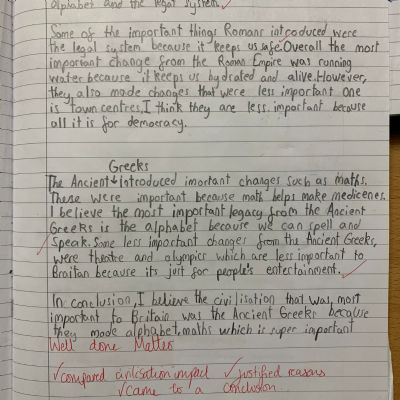 alphabet and the legal system.
Some of the important things Romans introduced were
the legal system because it keeps us safe. Overall the most
important change from the Roman Empire was running
water because it keeps us hydrated and alive. However,
they also made changes that were less important one
is town centres, I think they are less important because
all it is for democracy.
Greeks
The Ancient introduced imortant changes such as maths.
These were important because math helps make medicenes.
I believe the most important legacy from the Ancient
Greeks is the alphabet because we can spell and
speak. Some less important changes from the Ancient Greeks,
were theatre and olympics which are less important to
Braitan because its just for people's entertainment.
In conclusion, I believe the civilisation that was, most
important to Britain was the Ancient Greeks because
they made alphabet, maths which is super important
Well done Matteo
compared civilisation impact justified reasons
came to a conclusion